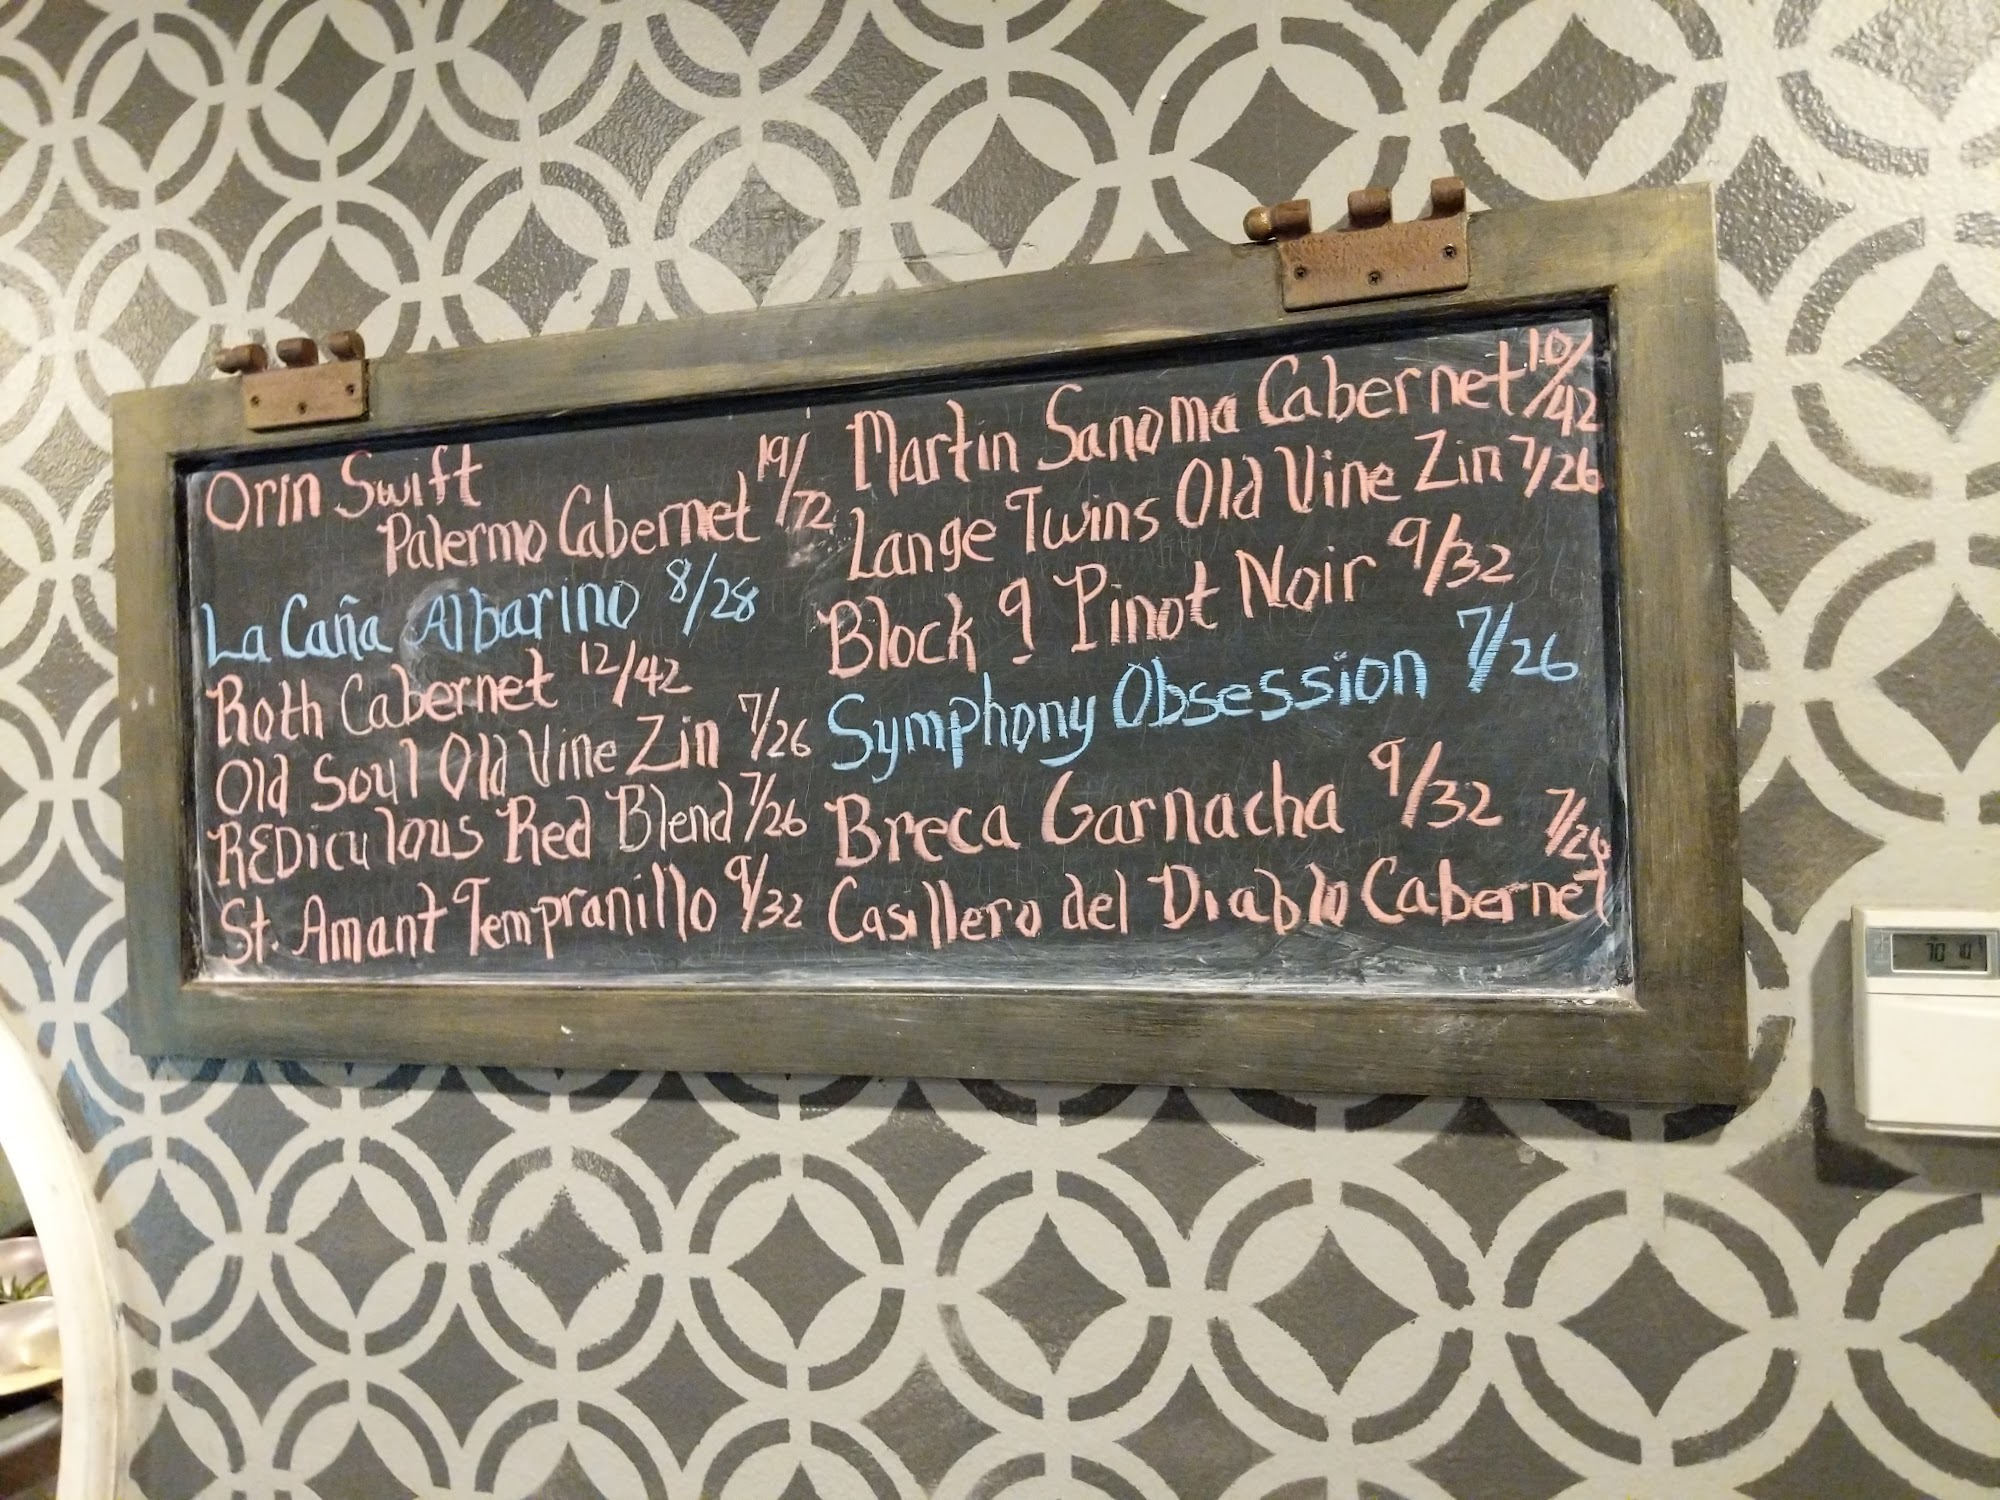 Orin Swift
Palermo Cabernet 19/72
La Caña Albarino 8/28
Roth Cabernet 12/42
Old Soul Old Vine Zin 7/26
REDiculous Red Blend 7/26
St. Amant Tempranillo 9/32
Martin Sanoma Cabernet 10/42
Lange Twins Old Vine Zin 7/26
Block 9 Pinot Noir 9/32
Symphony Obsession 7/26
Breca Garnacha 9/32
Casillero del Diablo Cabernet 7/26
70